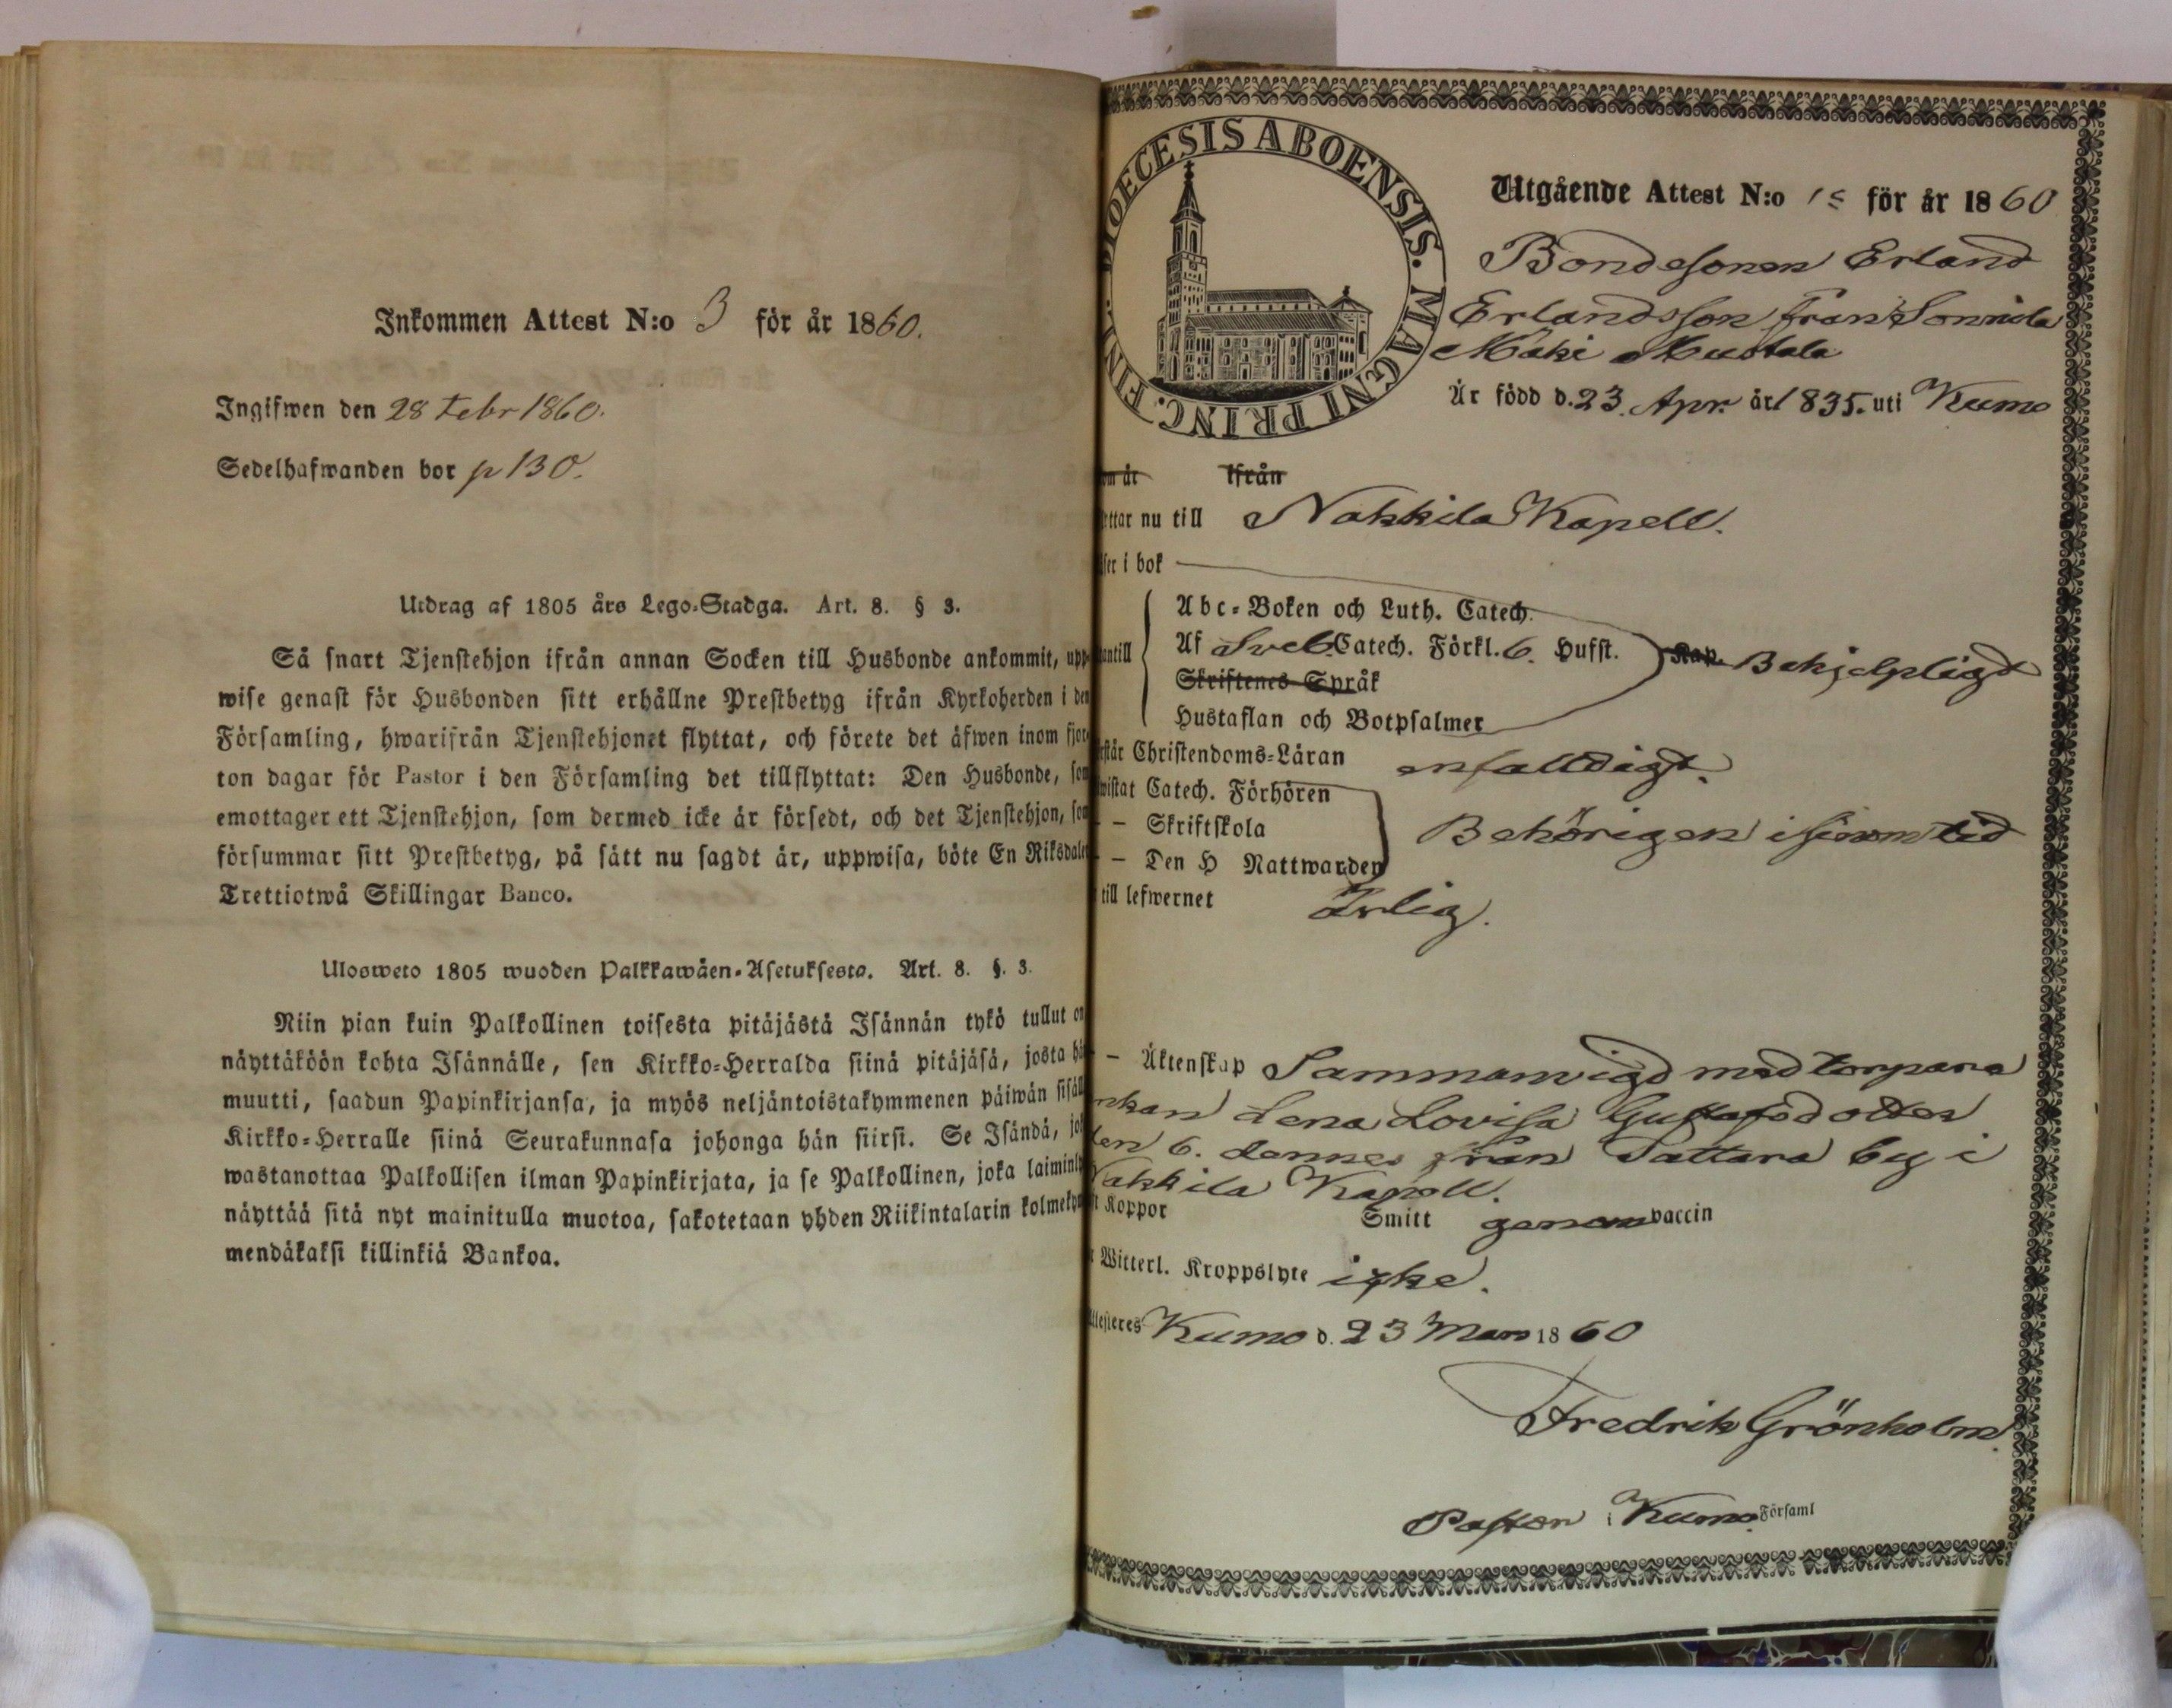 Inkommen Attest N:o 3 för år 1860.
Ingifwen den 28 Febr 1860.
Sedelhafwanden bor p 130.
Utdrag af 1805 års Lego-Stadga. Art. 8. § 3.
Så snart Tjenstehjon ifrån annan Socken till Husbonde ankommit, upp-
wise genast för Husbonden sitt erhållne Prestbetyg ifrån Kyrkoherden i den
Församling, hwarifrån Tjenstehjonet flyttat, och förete det äfwen inom fjor-
ton dagar för Pastor i den Församling det tillflyttat: Den Husbonde, som
emottager ett Tjenstehjon, som dermed icke är försedt, och det Tjenstehjon, som
försummar sitt Prestbetyg, på sätt nu sagdt är, uppwisa, böte En Riksdaler
Trettiotwå Skillingar Banco.
Ulosweto 1805 wuoden Palkkawäen-Asetuksesta. Art. 8. §. 3.
Niin pian kuin Palkollinen toisesta pitäjästä Isännän tykö tullut on
näyttäköön kohta Isännälle, sen Kirkko-Herralda siinä pitäjäsä, josta hän
muutti, saadun Papinkirjansa, ja myös neljäntoistakymmenen päiwän sisäll
Kirkko-Herralle siinä Seurakunnasa johonga hän siirsi. Se Isändä, jo
wastanottaa Palkollisen ilman Papinkirjata, ja se Palkollinen, joka laiminly
näyttää sitä nyt mainitulla muotoa, sakotetaan yhden Riikintalarin kolmekym
mendäkaksi killinkiä Bankoa.
DIOECESIS ABOENSIS. MAGNI PRINC. FINL.
Utgående Attest N:o för år 1860
Bondesonen Erland
Erlandsson från Sonnila
Mäki Mustala
Är född d. 23. Apr. år 1835. uti Kumo
om år ifrån
ttar nu till Nakkila Kapell.
ser i bok
Abc-Boken och Luth. Catech.
antill Af Sveb. Catech. Förkl. 6. Hufst. Kap. Behjelpligt
Skriftenes Språk
Hustaflan och Botpsalmer
rstår Christendoms-Läran enfalldigt.
wistat Catech. Förhören
— Skriftskola Behörigen i sinom tid
— Den H Nattwarden
till lefwernet Ärlig.
— Äktenskap Sammanvigd med torpare
nkan Lena Lovisa Gustafsdotter
den 6. dennes från Tattara by i
Nakkila Kapell.
Koppor Smitt genom vaccin
Witterl. Kroppslyte icke.
ttesteres Kumo d. 23 Mars 1860
Fredrik Grönholm.
Pastor i Kumo Församl